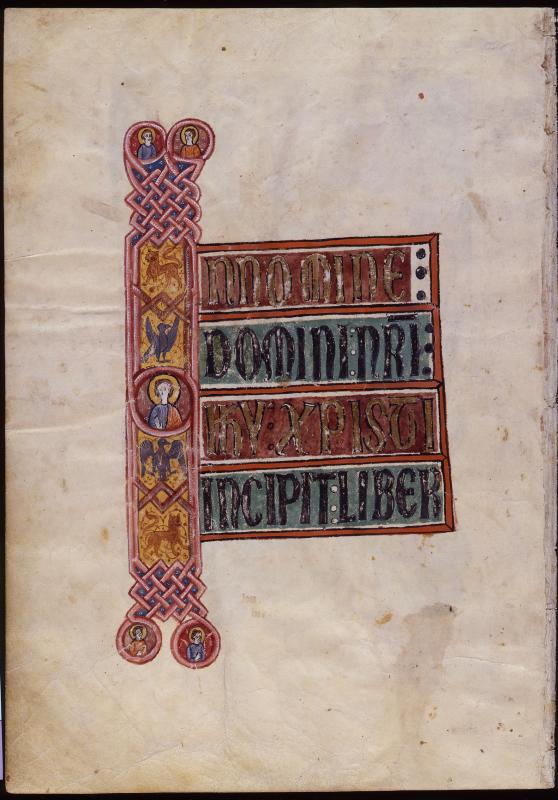 INNOMINE⋮
DOMINI:NR̄I:
IHV:XPISTI
INCIPIT:LIBER